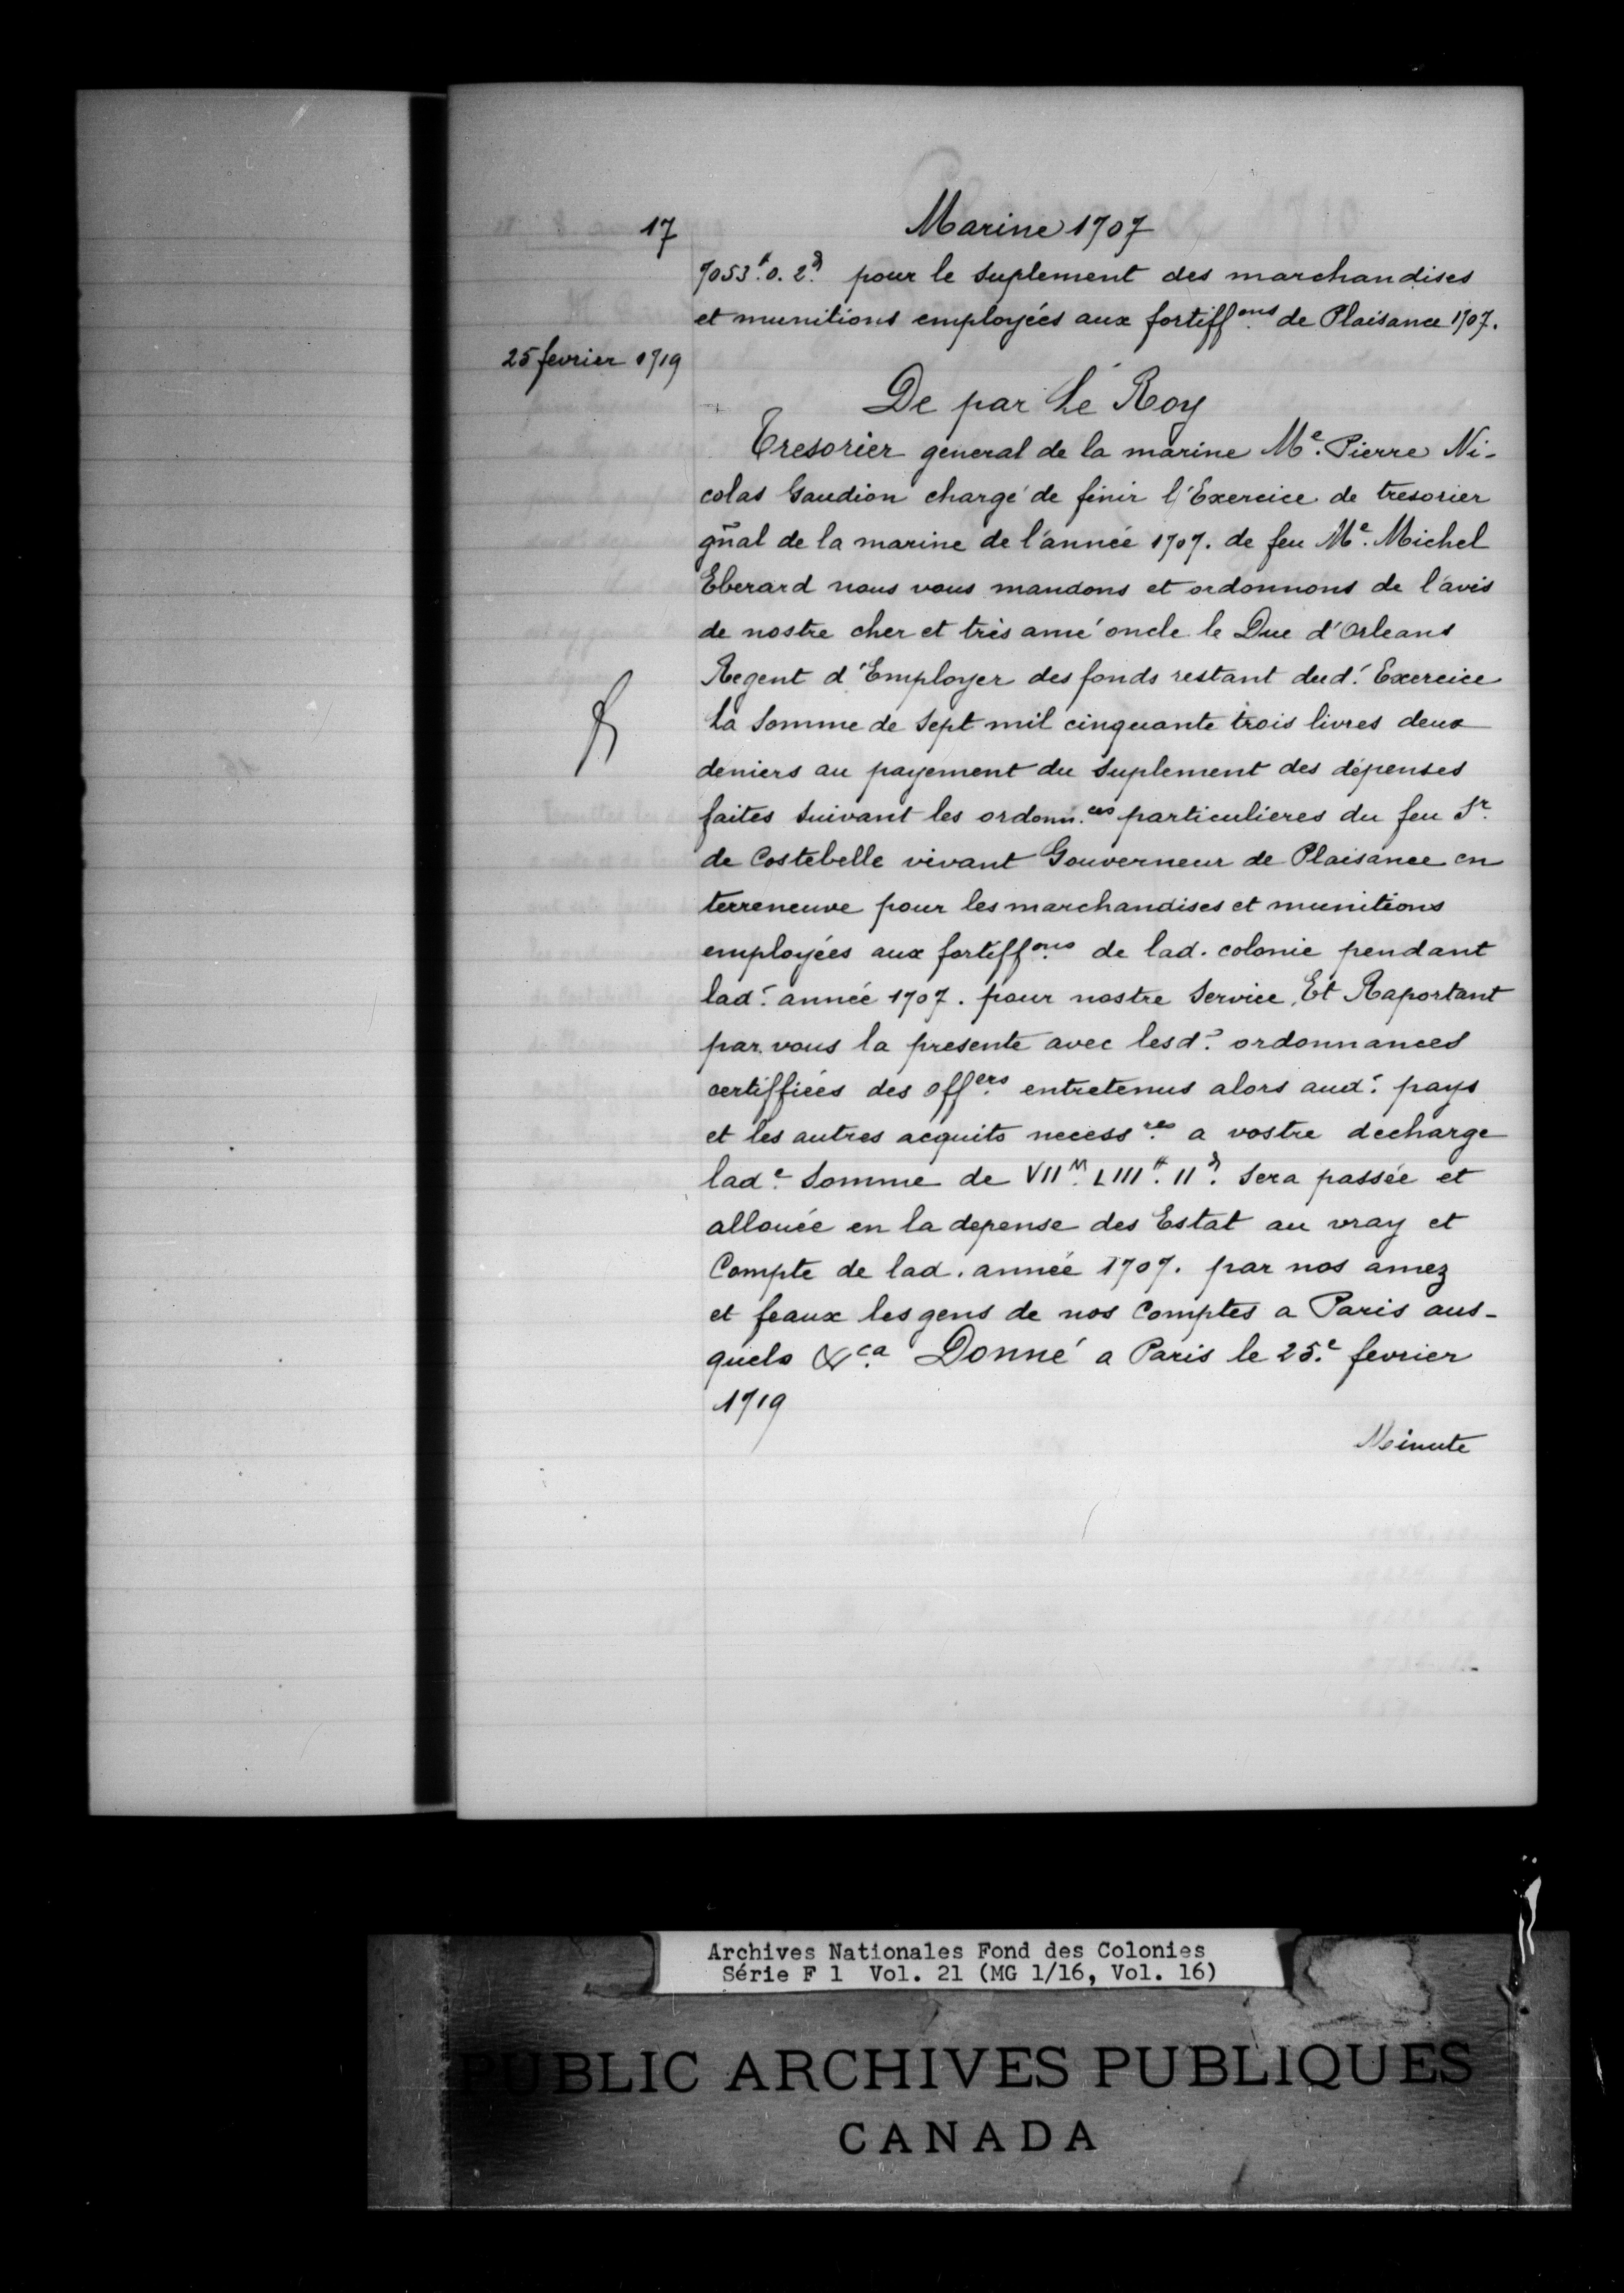 17
Marine 1707
7053ᵗᵗ. 0. 2ᵈ. pour le suplement des marchandises
et munitions employées aux fortiffᵒⁿˢ de Plaisance 1707.
25 fevrier 1719
De par Le Roy
Tresorier general de la marine Mᵉ. Pierre Ni-
colas Gaudion chargé de finir l'Exercice de tresorier
gñal de la marine de l'année 1707. de feu Mᵉ. Michel
Eberard nous vous mandons et ordonnons de l'avis
de nostre cher et très amé oncle le Duc d'Orleans
Regent d'Employer des fonds restant dud. Exercice
La Somme de Sept mil cinquante trois livres deux
deniers au payement du Suplement des dépenses
faites suivant les ordonn.ᶜᵉˢ particulieres du feu Sʳ.
de Costebelle vivant Gouverneur de Plaisance en
terreneuve pour les marchandises et munitions
employées aux fortiffᵒⁿˢ de lad. colonie pendant
lad. année 1707. pour nostre Service, Et Raportant
par vous la presente avec lesd. ordonnances
certiffiées des offᵉʳˢ entretenus alors aud. pays
et les autres acquits necessʳᵉˢ a vostre decharge
ladᵉ Somme de VIIᴹ. LIIIᵗᵗ. IIᵈ. Sera passée et
allouée en la depense des Estat au vray et
Compte de lad. année 1707. par nos amez
et feaux les gens de nos Comptes a Paris aus-
quels &ᶜᵃ Donné a Paris le 25.ᵉ fevrier
1719
Minute
Archives Nationales Fond des Colonies
Série F 1 Vol. 21 (MG 1/16, Vol. 16)
PUBLIC ARCHIVES PUBLIQUES
CANADA